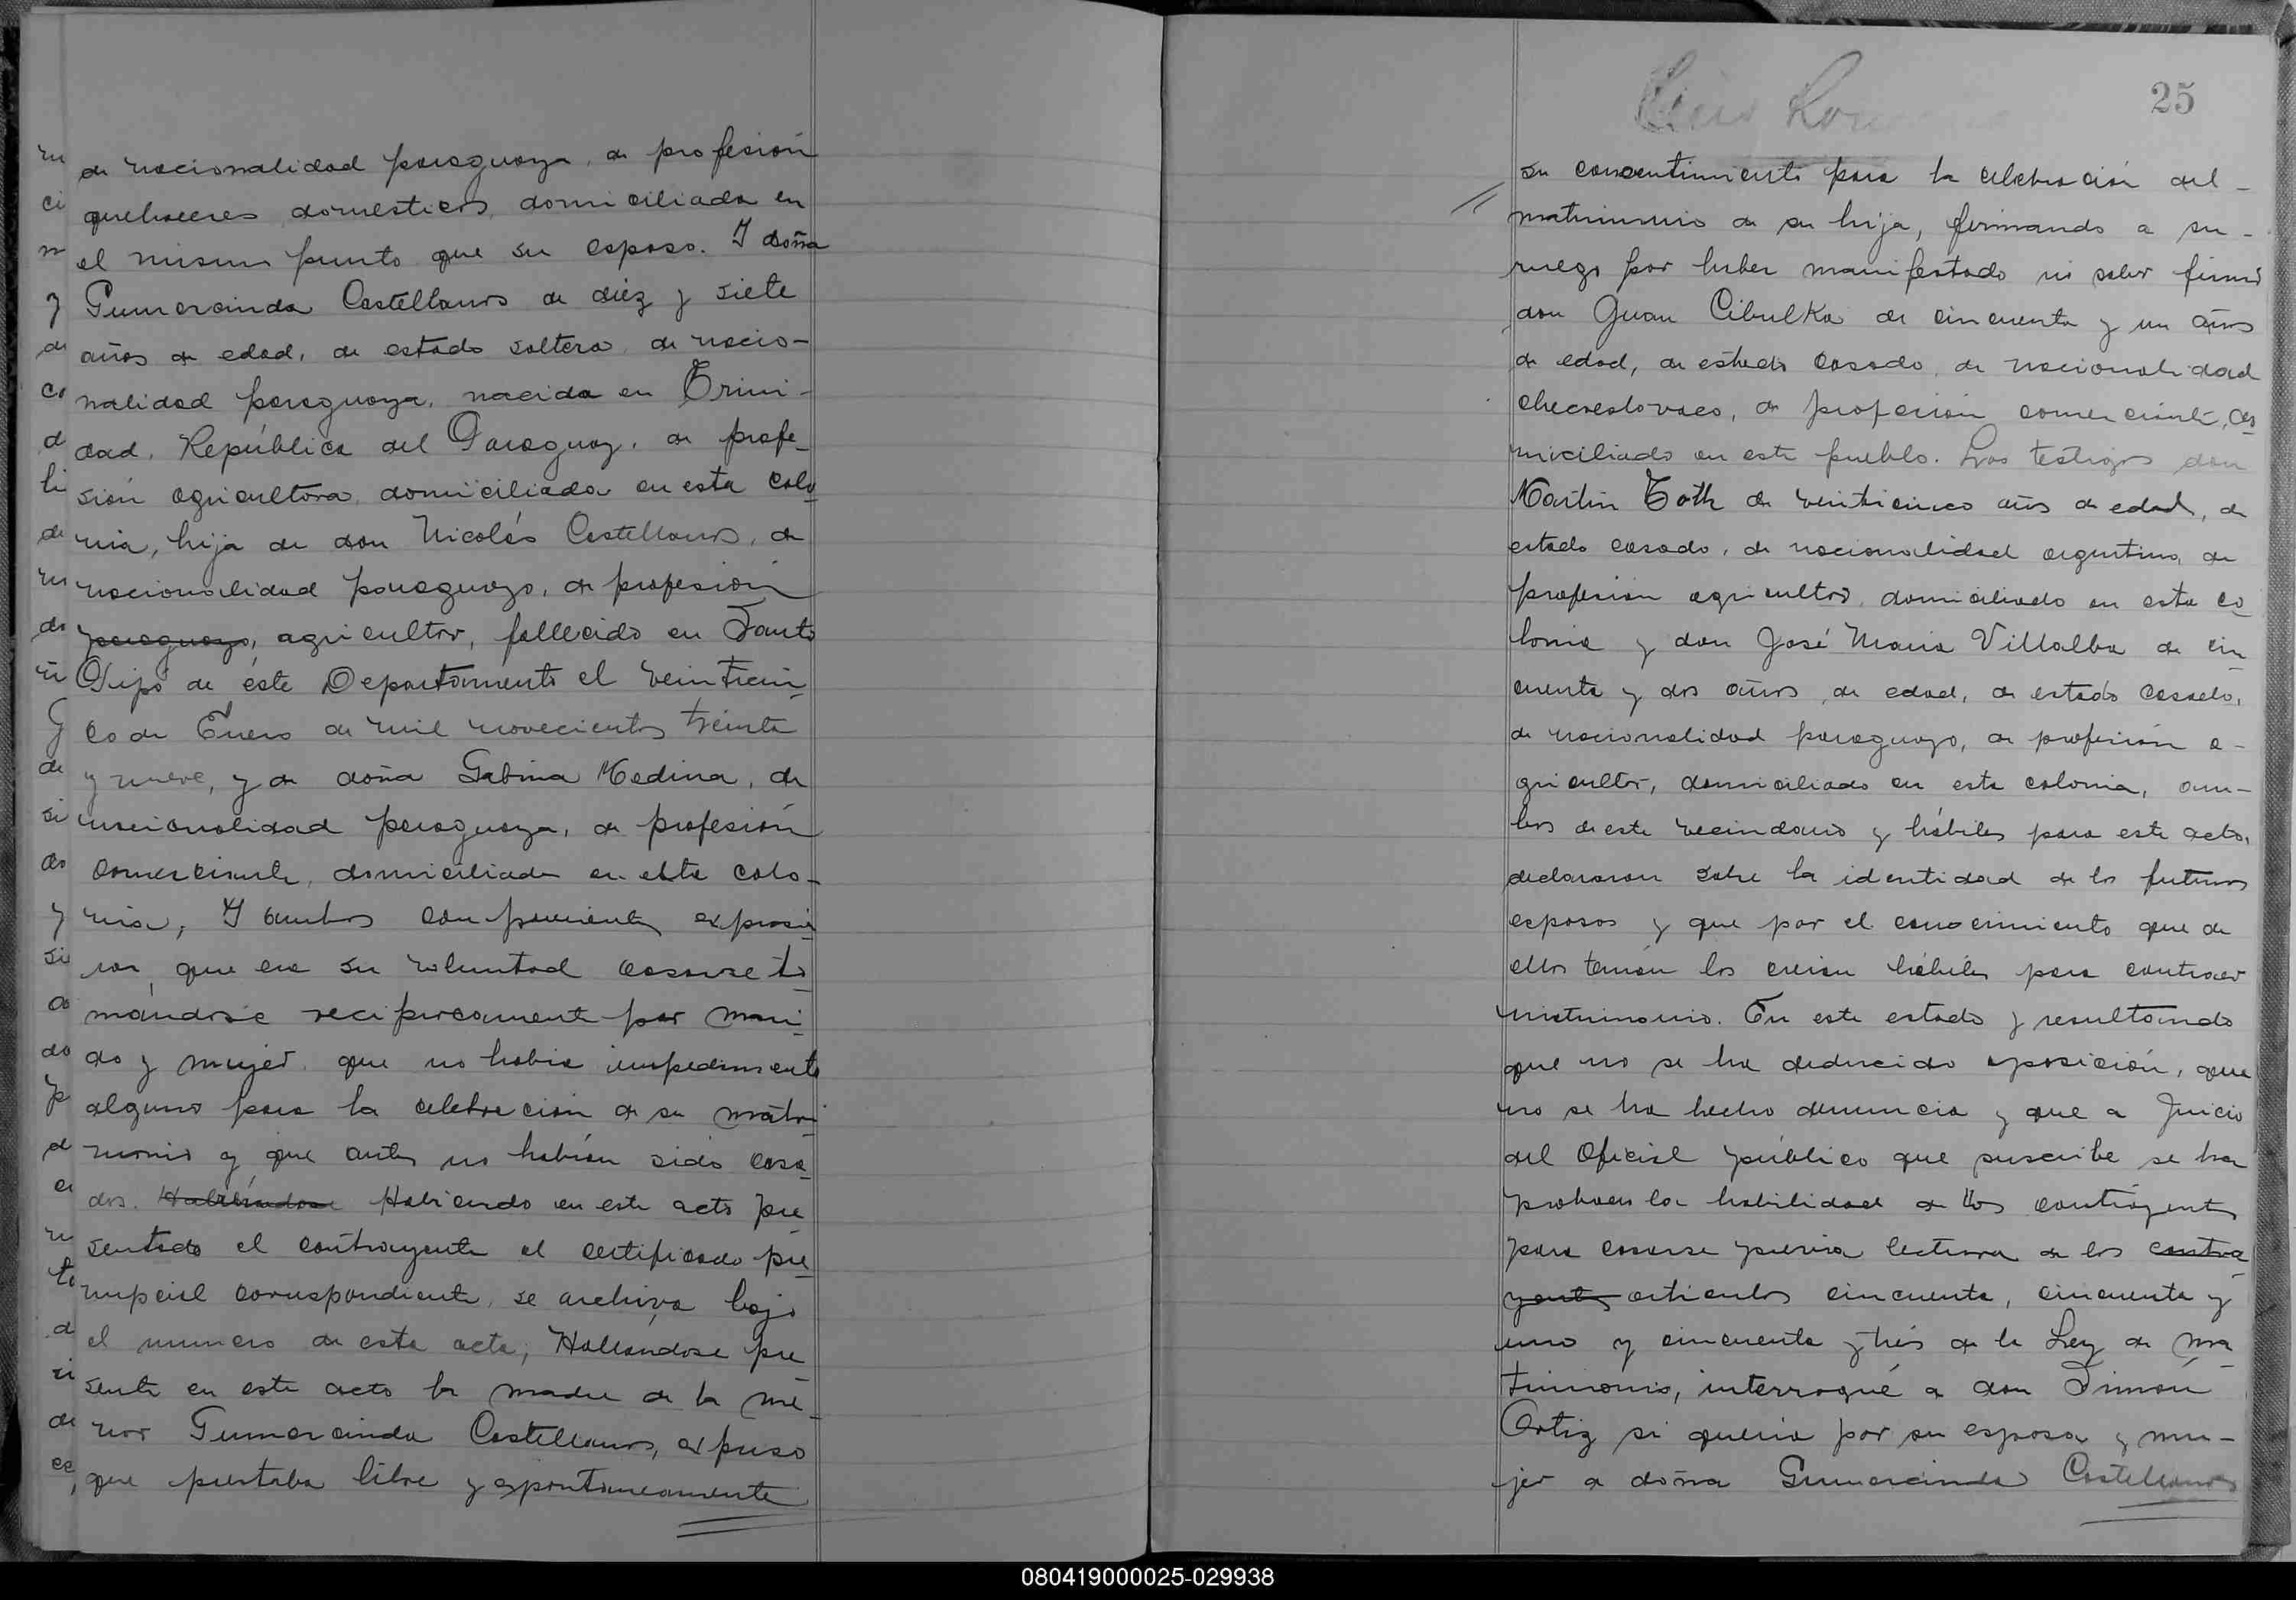 de nacionalidad paraguaya, de profesión
quehaceres domesticos, domiciliada en
el mismo punto que su esposo. Y doña
Gumercinda Castellanos de diéz y siete
años de edad, de estado soltera, de nacio-
nalidad paraguaya, nacida en Trini-
dad, República del Paraguay, de profe-
sión agricultora, domiciliada en esta colo-
nia, hija de don Nicolás Castellanos, de
nacionalidad paraguayo, de profesión
paraguayo, agricultor, fallecido en Santo
Pipó de éste Departamento el veinticin-
co de Enero de mil novecientos treinta
y nueve, y de doña Sabina Medina, de
nacionalidad paraguaya, de profesión
comerciante, domiciliada en esta colo-
nia, Y ambos comparecientes expusie-
ron, que era su voluntad casarse to-
mándose reciprocamente por mari-
do y mujer que no habia impedimento
alguno para la celebracion de su matri-
monio y que antes no habían sido casa-
dos. Habiéndose Habiendo en este acto pre-
sentado el contrayente el certificado pre-
nupcial correspondiente, se archiva bajo
el numero de esta acta, Hallándose pre-
sente en este acto la madre de la me-
nor Gumercinda Castellanos, expuso
que prestaba libre y espontaneamente
25
su consentimiento para la celebración del-
matrimonio de su hija, firmando a su-
ruego por haber manifestado no saber firmar
don Juan Cibulka de cincuenta y un años
de edad, de estado casado, de nacionalidad
checoeslovaco, de profesión comerciante, do-
miciliado en este pueblo. Los testigos don
Martin Toth de veinticinco años de edad, de
estado casado, de nacionalidad argentino, de
profesión agricultor, domiciliado en esta co-
lonia y don José Maria Villalba de cin-
cuenta y dos años, de edad, de estado casado,
de nacionalidad paraguayo, de profesión a-
gricultor, domiciliado en esta colonia, am-
bos de este vecindario y hábiles para este acto,
declararon sobre la identidad de los futuros
esposos y que por el conocimiento que de
ellos tenian los creian hábiles para contraer
matrimonio. En este estado y resultando
que no se ha deducido oposición, que
no se ha hecho denuncia y que a Juicio
del Oficial público que suscribe se ha
probado la habilidad de los contrayentes
para casarse previa lectura de los contra-
yentes articulos cincuenta, cincuenta y
uno y cincuenta y tres de la Ley de ma-
trimonio, interrogué a don Simón
Ortiz si queria por su esposa y mu-
jer a doña Gumercinda Castellanos
080419000025-029938